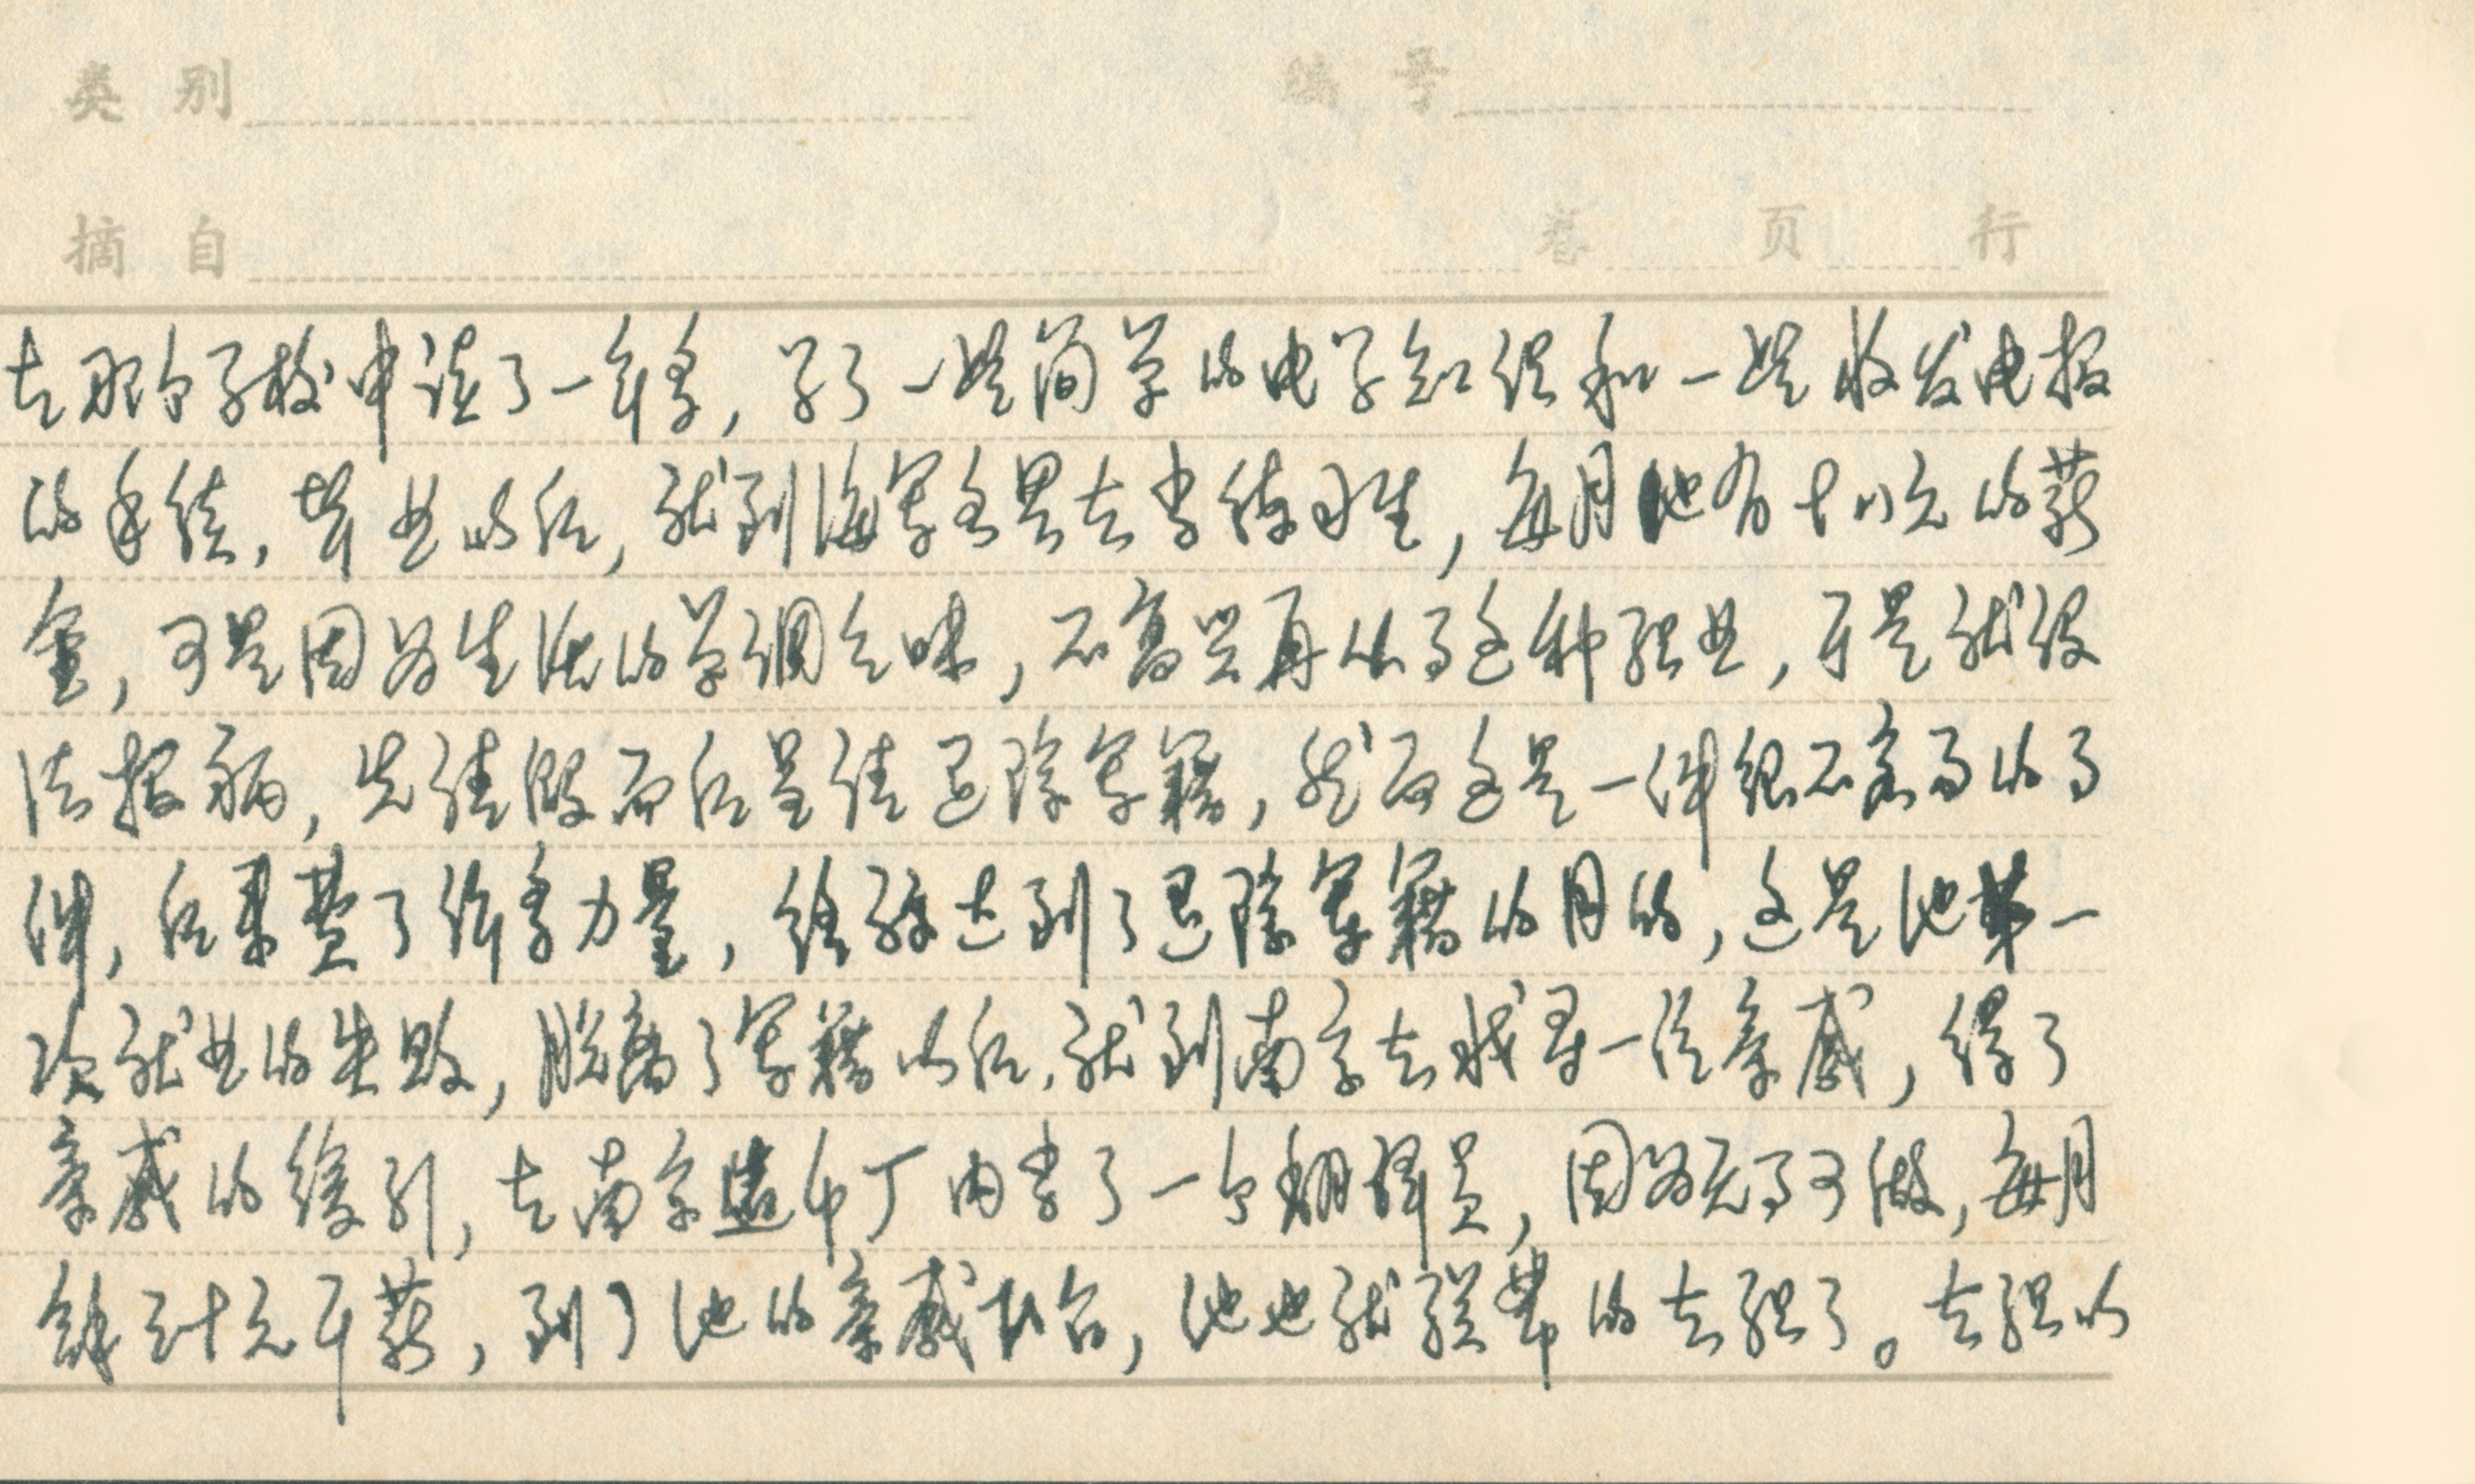 类别 编号
摘自 卷 页 行
在那个学校中读了一年多，学了一些简单的电学知识和一些收发电报
的手续，毕业以后，就到海军各署去当练习生，每月他有十八元的薪
金，可是因为生活的单调乏味，不高兴再从事这种职业，于是就设
法报病，先请假而后呈请退除军籍，然而这是一件很不容易的事
件，后来费了许多力量，终于达到了退除军籍的目的，这是他第一
次就业的失败，脱离了军籍以后，就到南京去找寻一位亲戚，得了
亲戚的援引，在南京造币厂内当了一个翻译员，因为无事可做，每月
三十元干薪，到了他的亲戚下台，他也就联带的去职了。去职以